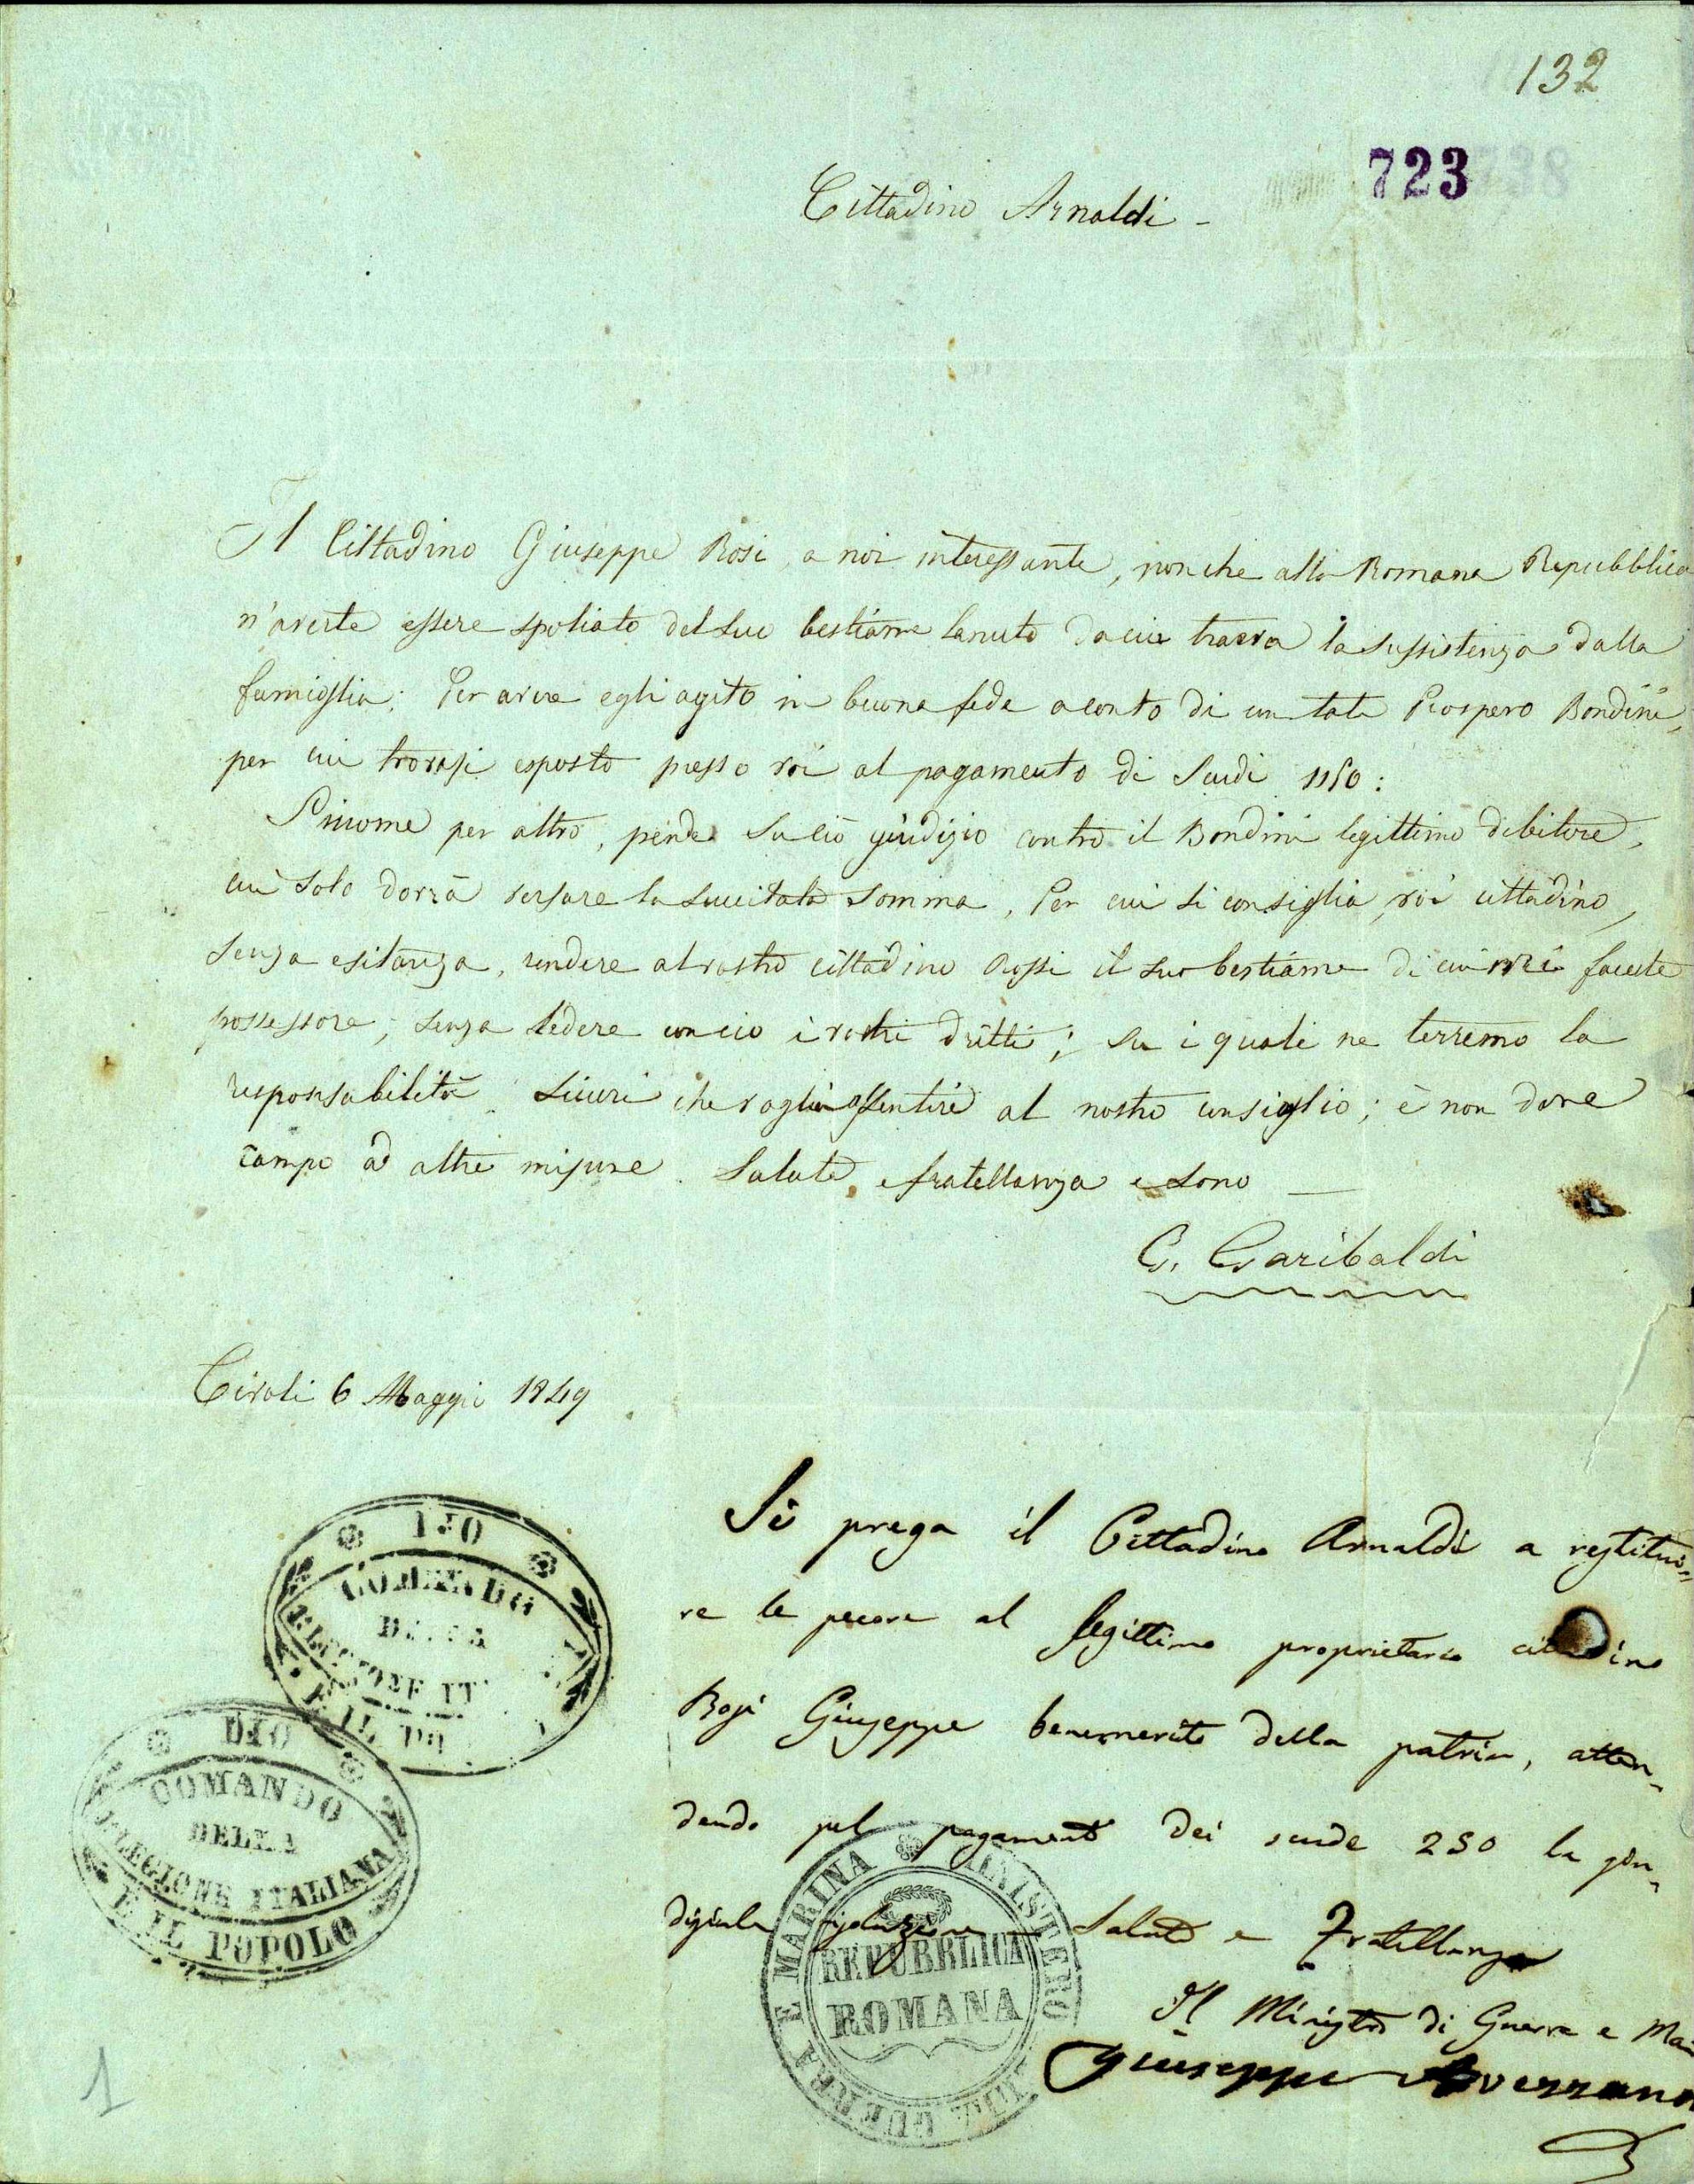 132
723
Cittadino Arnaldi -
Il Cittadino Giuseppe Rosi, a noi interessante, nonche alla Romana Repubblica
n'averte essere spoliato del suo bestiame lanuto da cui traeva la sussistenza dalla
famiglia: Per avere egli agito in buona fede a conto di un tale Prospero Bondini,
per cui trovasi esposto presso voi al pagamento di Scudi 1150:
Siccome per altro, pende su ciò giudizio contro il Bondini legittimo debitore,
cui solo dovrà versare la succitata somma, Per cui si consiglia, voi cittadino,
senza esitanza, rendere al vostro cittadino Rossi il suo bestiame di cui vi faceste
possessore; senza ledere con cio i vostri dritti; su i quali ne terremo la
responsabilità. Sicuri che voglia assentire al nostro consiglio; è non dare
campo ad altre misure. Salute, e fratellanza e sono —
G. Garibaldi
Tivoli 6 Maggio 1849
Si prega il Cittadino Arnaldi a restitui=
re le pecore al legittimo proprietario cittadino
Rosi Giuseppe benemerito della patria, atten=
dendo pel pagamento dei scudi 250 la giu=
diziale risoluzione – Salute e Fratellanza
Il Ministro di Guerra e Ma
Giuseppe Avezzana
DIO
COMANDO
DELLA
LEGIONE IT
E IL PO
DIO
COMANDO
DELLA
LEGIONE ITALIANA
E IL POPOLO
MINISTERO DI GUERRA E MARINA
REPUBBLICA
ROMANA
1